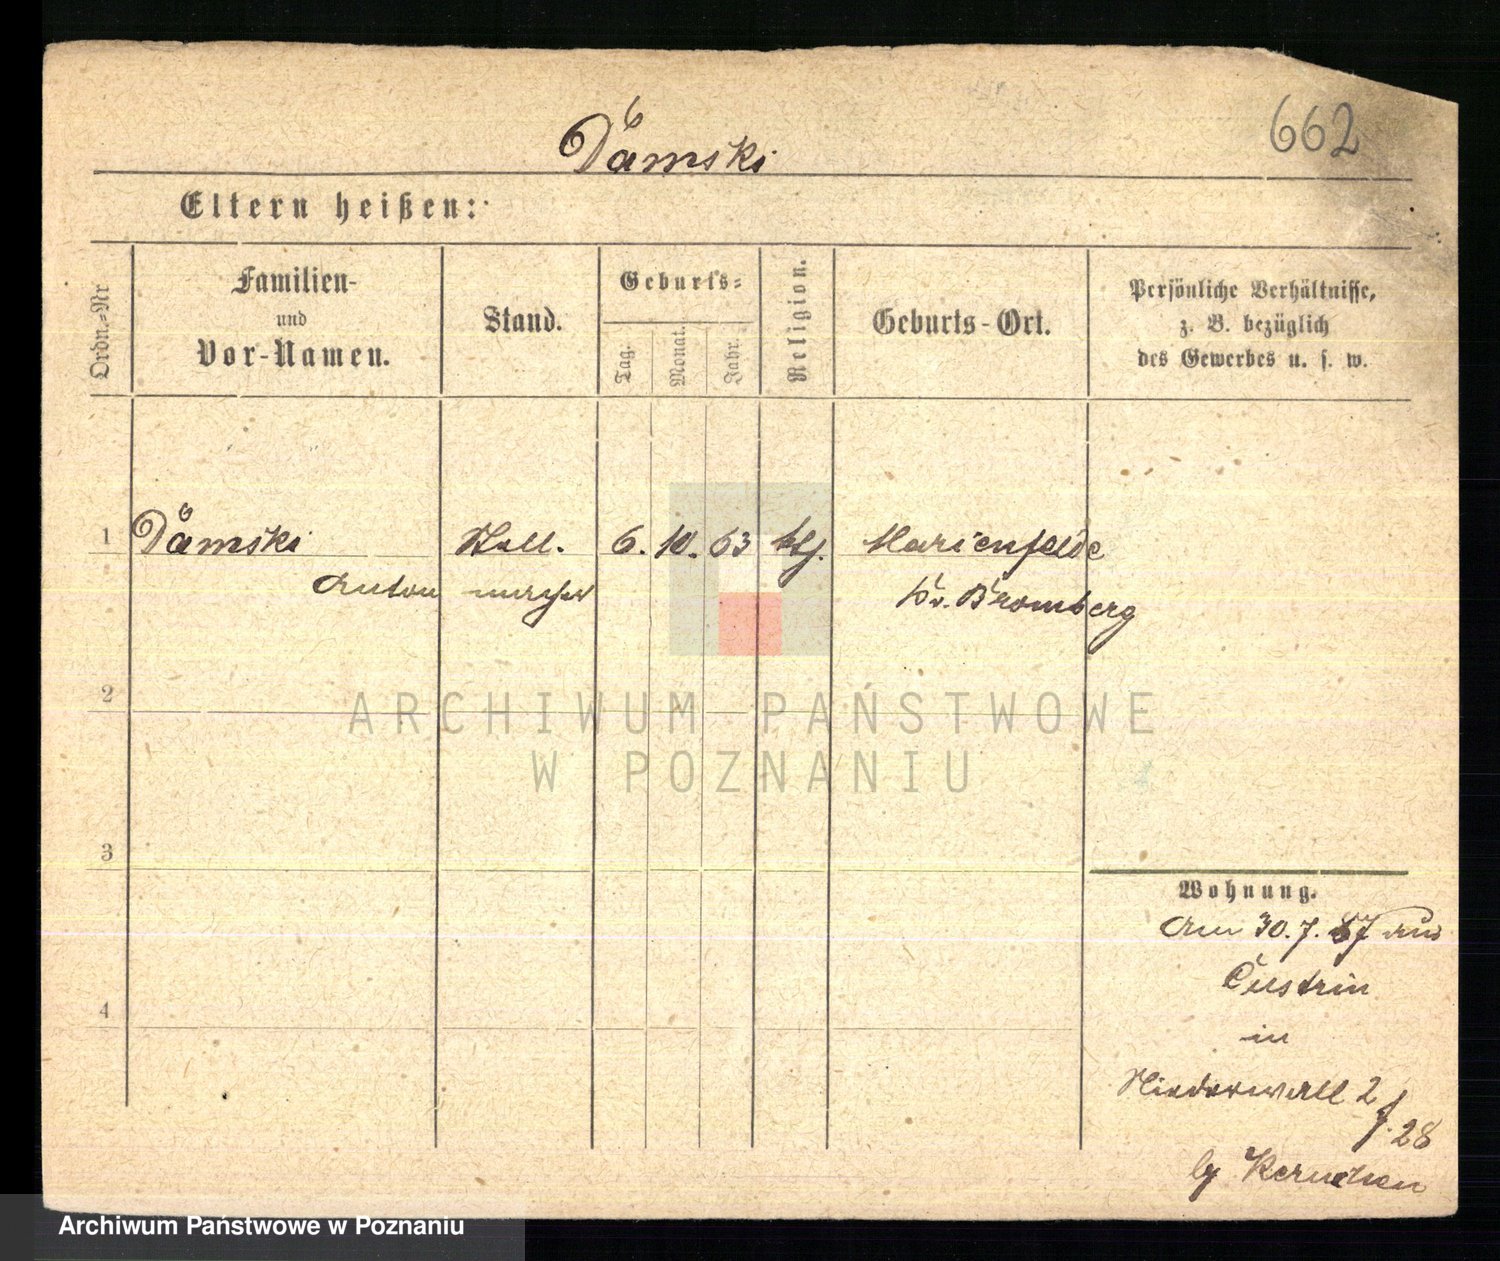 662
Dämski
Eltern heißen:
Ordn.=Nr
Familien-
und
Vor-Namen.
Stand.
Geburts=
Tag.
Monat.
Jahr.
Religion.
Geburts-Ort.
Persönliche Verhältnisse,
z. B. bezüglich
des Gewerbes u. s. w.
1 Dämski 6. 10. 63 kth. Marienfelde
Anton macher Kr. Bromberg
2
ARCHIWUM PAŃSTWOWE
W POZNANIU
3
Wohnung.
Am 30.7.87 aus
Cüstrin
4
in
Niederwall 2
28
Archiwum Państwowe w Poznaniu